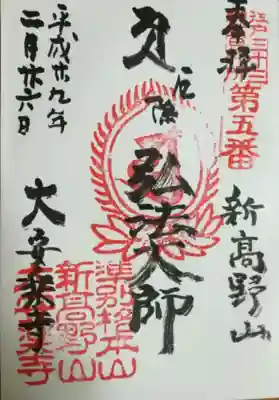 奉拝
第五番
新高野山
厄除
弘法大師
大安楽寺
準別格本山
新高野山
大安楽寺
平成廿九年
二月廿六日